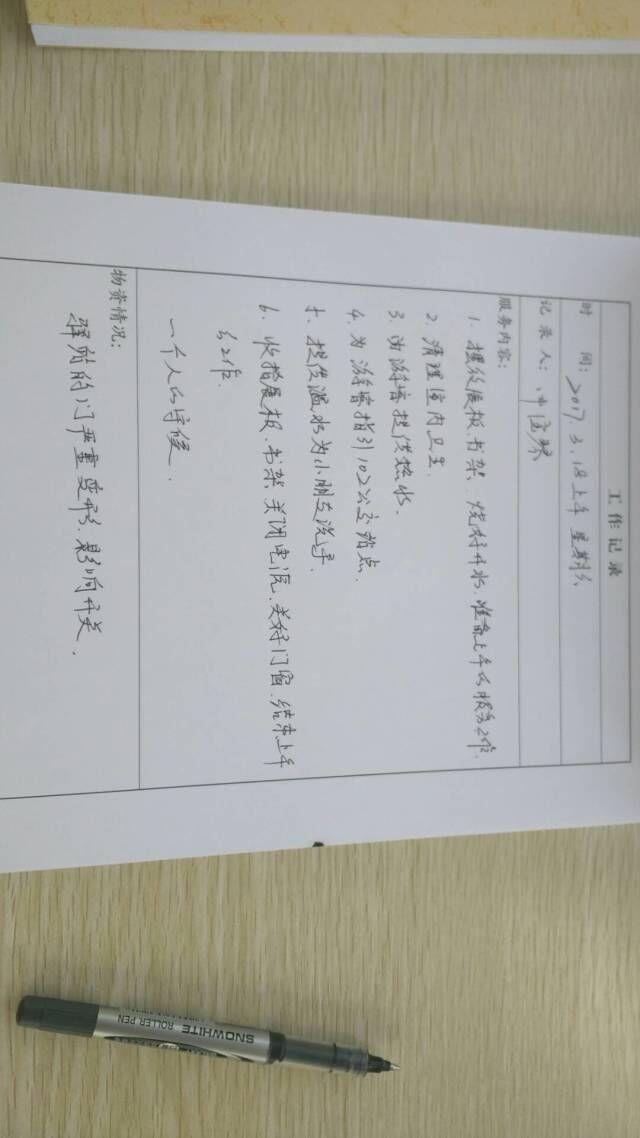 工作记录
时 间: 2017.3.18上午 星期六
记录人:
服务内容:
1. 摆放展板、书架、烧好开水、准备上午的服务工作.
2. 清理室内卫生.
3. 为游客提供热水.
4. 为游客指引102公交站点.
5. 提供温水为小朋友洗手.
6. 收拾展板、书架、关闭电源、关好门窗、结束上午
的工作.
一个人的守候.
物资情况:
驿站的门严重变形、影响开关.
SNOWHITE ROLLER PEN